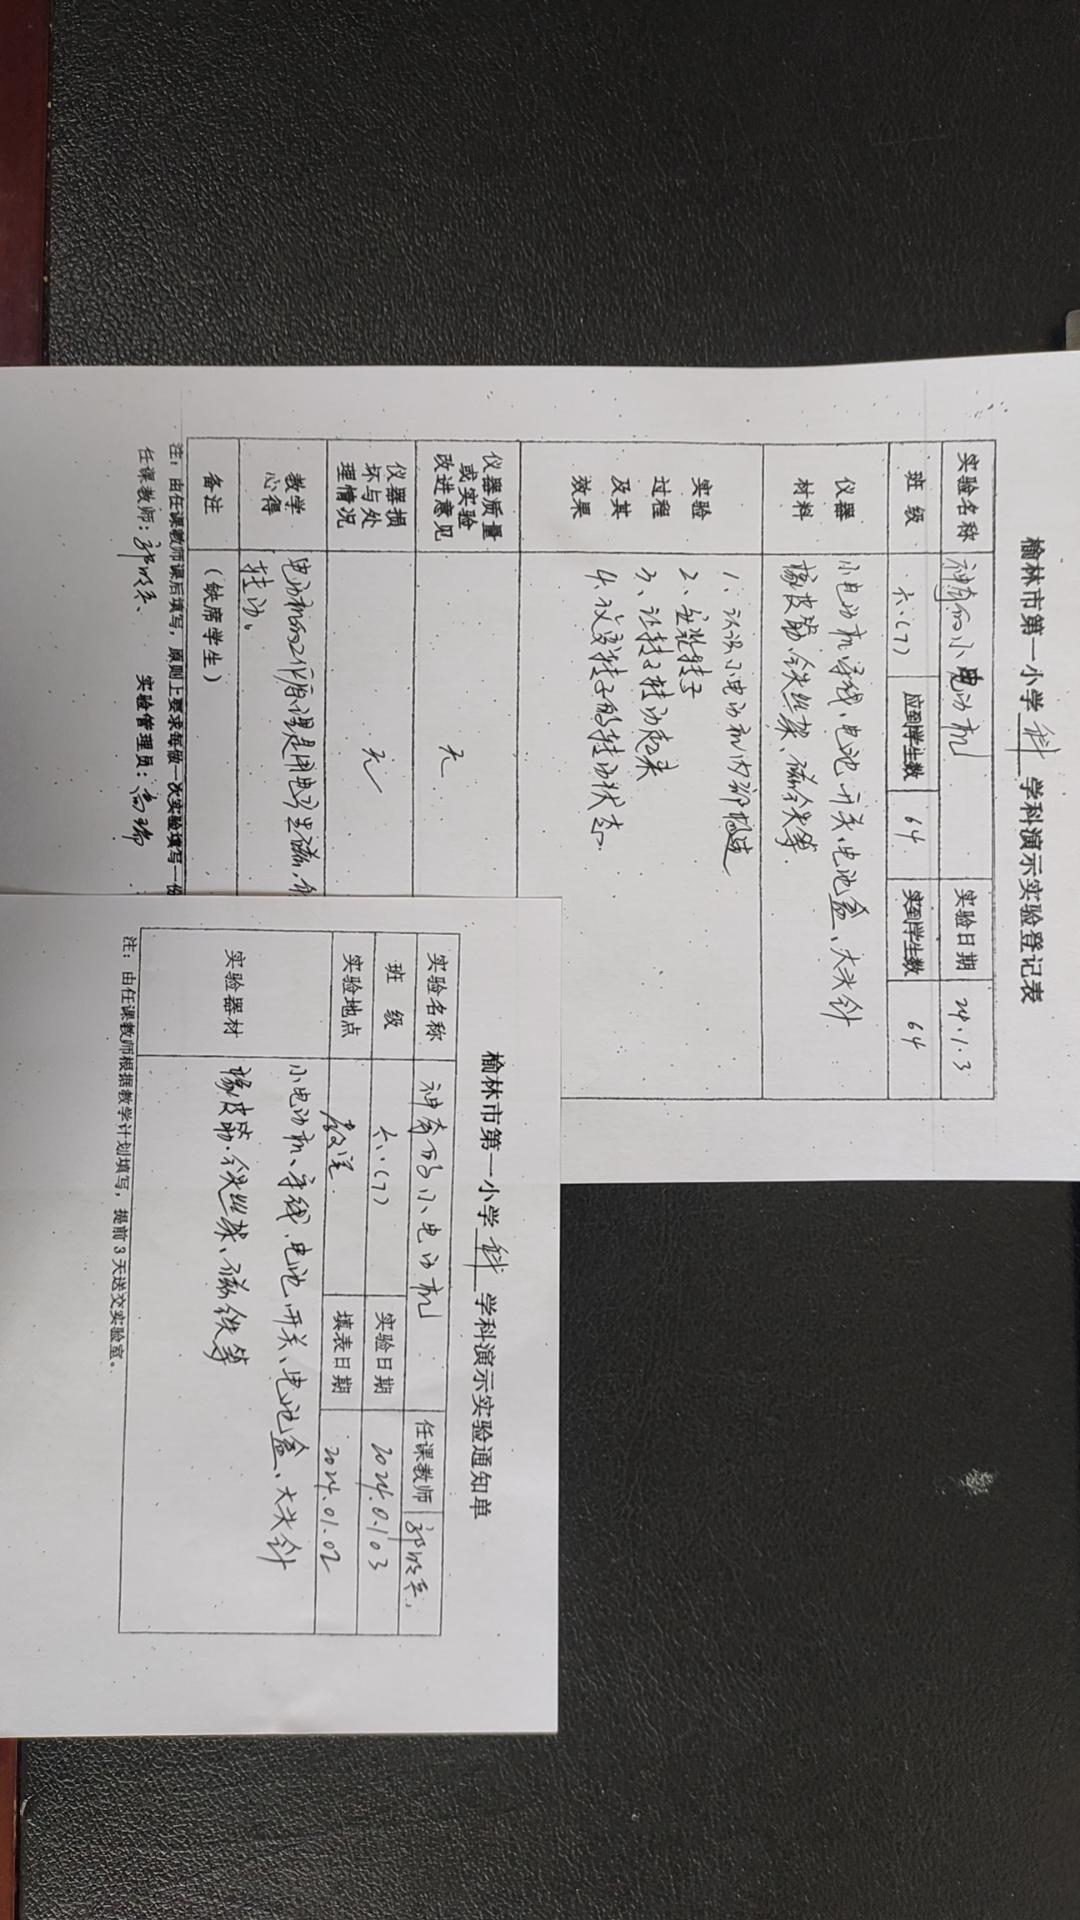 榆林市第一小学 科 学科演示实验登记表
实验名称 神奇的小电动机 实验日期 24.1.3
班 级 六.(7) 应到学生数 64 实到学生数 64
仪器材料 小电动机、导线、电池、开关、电池盒、大头针
橡皮筋、铁丝架、磁铁等.
实验过程及其效果
1、认识小电动机内部构造
2、安装转子
3、让转子转动起来
4、改变转子的转动状态.
仪器质量或实验改进意见 无
仪器损坏与处理情况 无
教学心得 电动机的工作原理是用电产生磁,
转动。
备注 (缺席学生)
注: 由任课教师课后填写, 原则上要求每做一次实验填写一份
任课教师: 实验管理员: 高瑞
榆林市第一小学 科 学科演示实验通知单
实验名称 神奇的小电动机 任课教师
班 级 六.(7) 实验日期 2024.0.103
实验地点 教室. 填表日期 2024.01.02
实验器材
小电动机、导线、电池、开关、电池盒、大头针
橡皮筋.铁丝架、磁铁等
注: 由任课教师根据教学计划填写, 提前 3 天送交实验室。